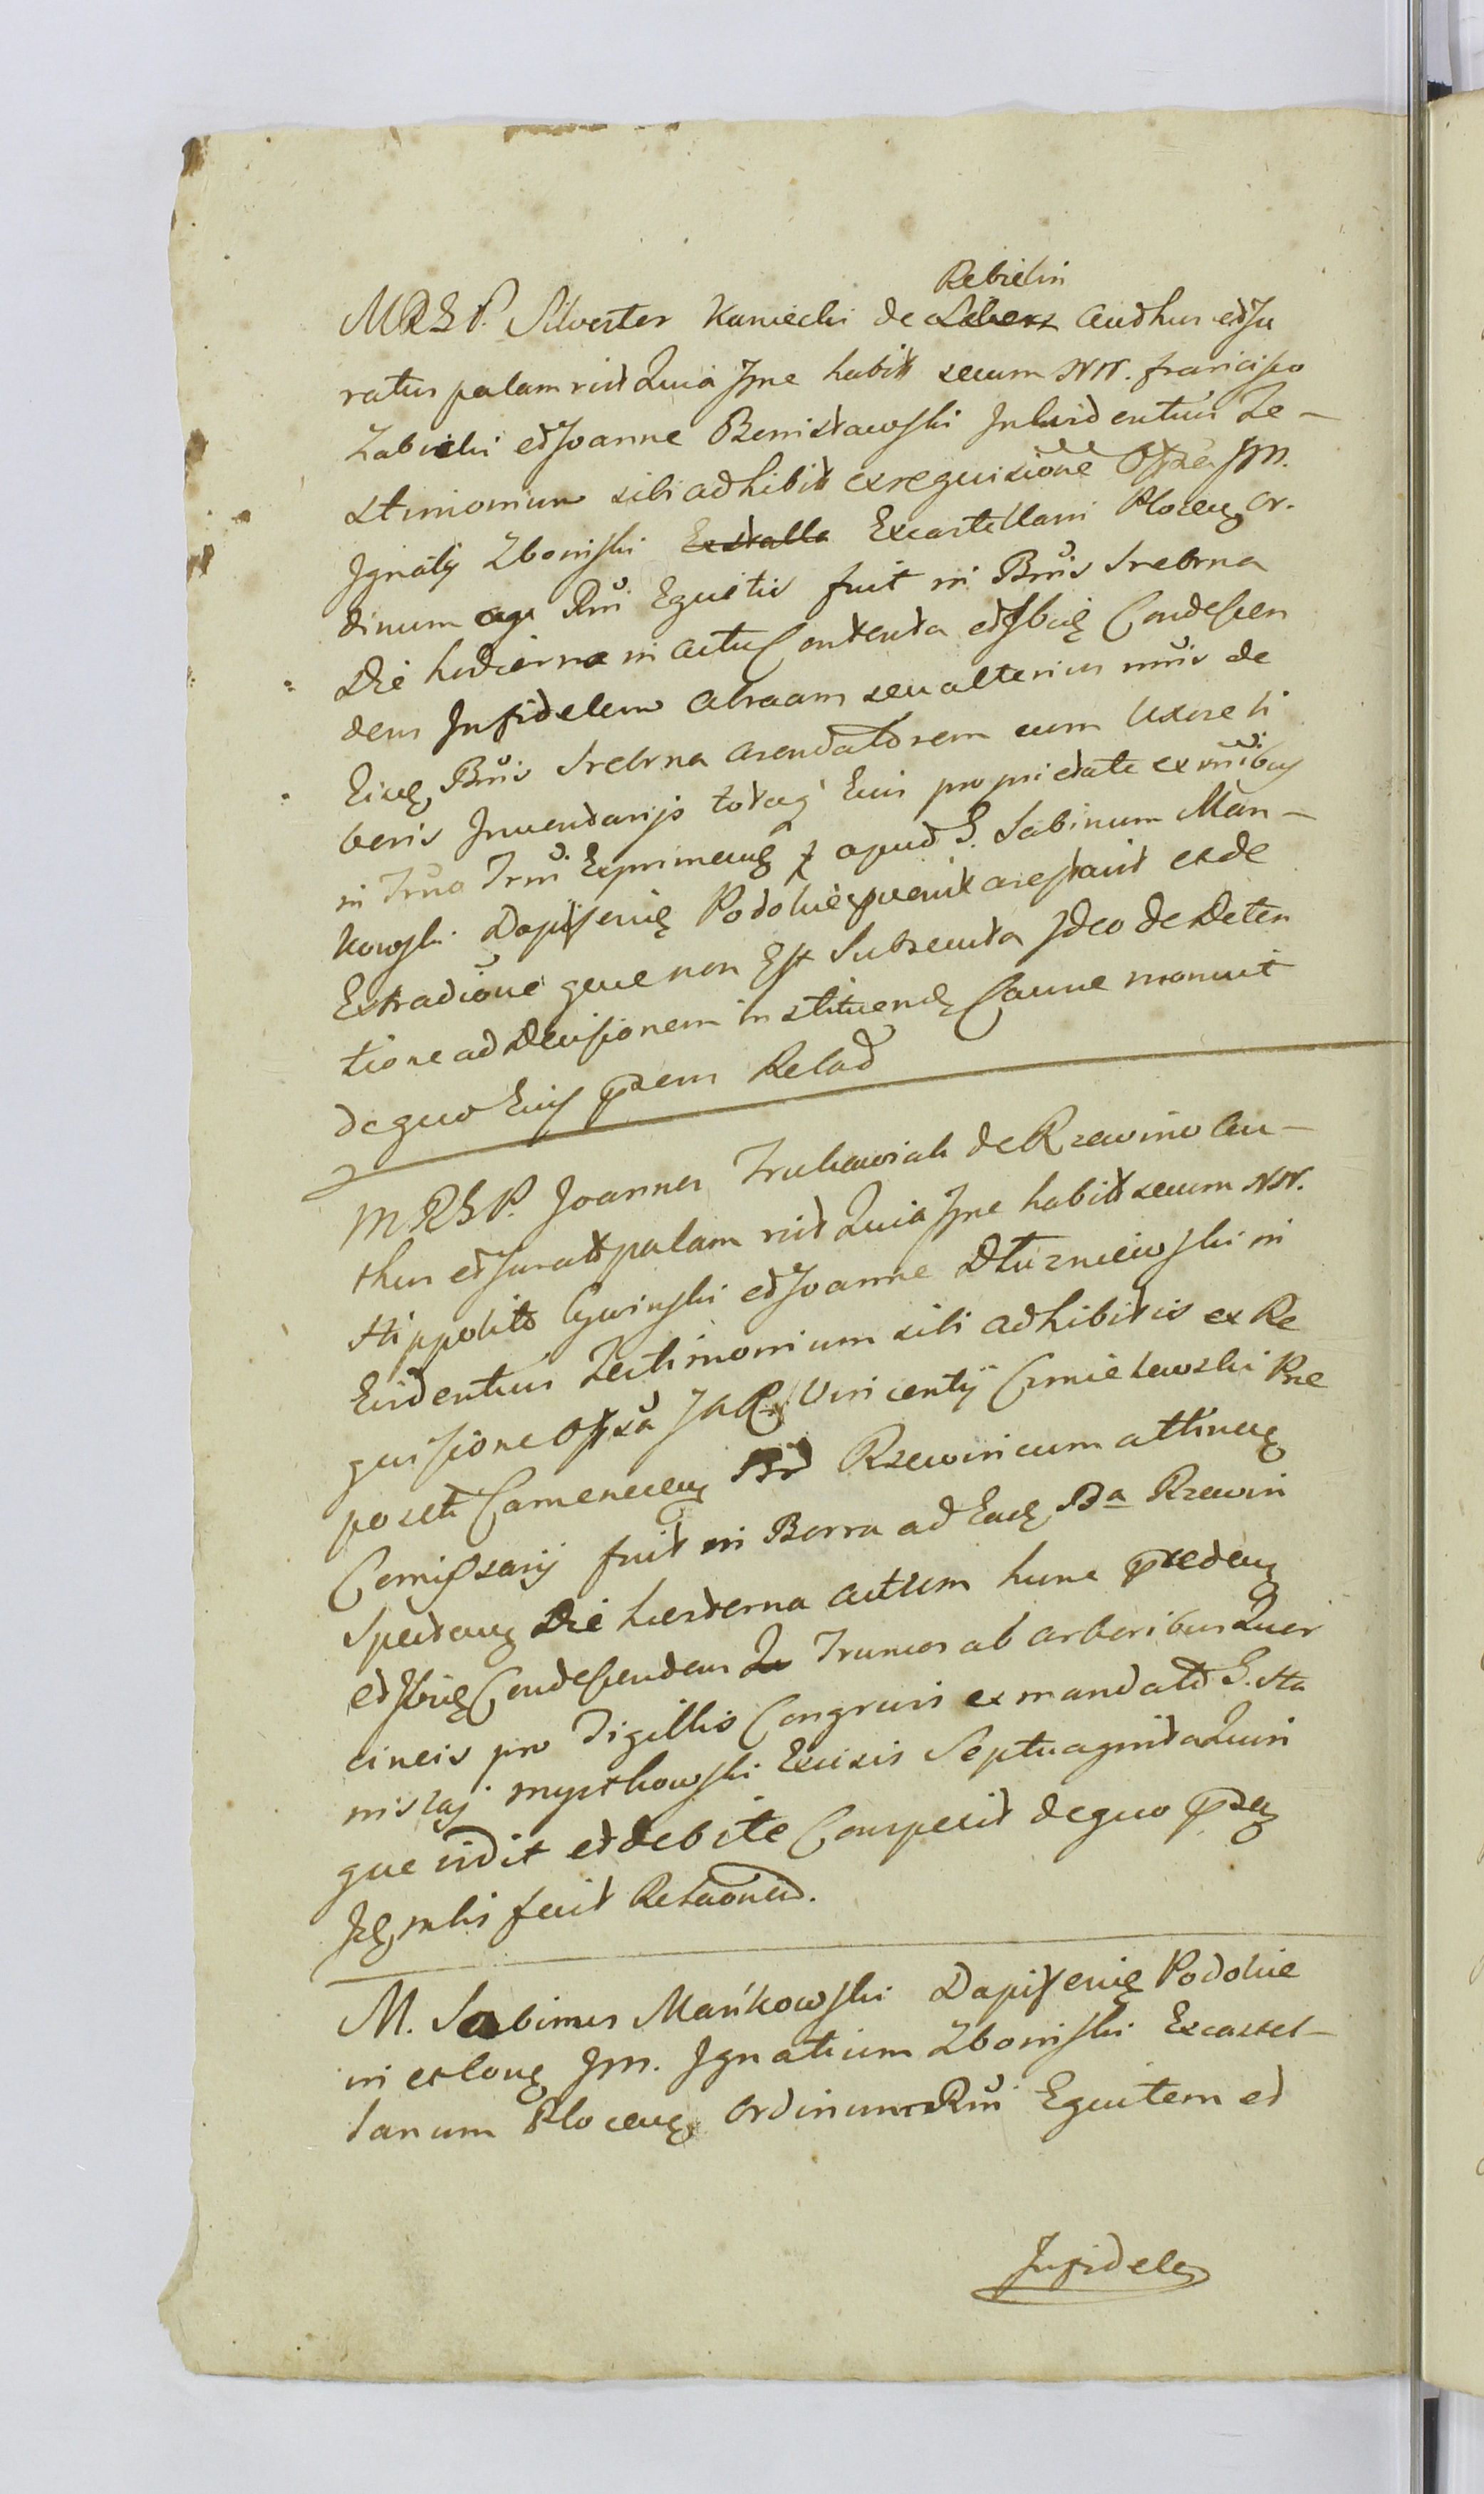 Rebielin
MRSP. Silvester Kaniecki de Audhus et Ju
ratus palam rist Quia Ipse habitt secum NN. francisco
Zabicki et Joanne Benistawski In Euidentius Te-
stimonium sibi adhibitt ex requisitione Offza JM.
Ignatij Zboinski Excastellani Ploceng Or-
dinum Rni Equitis fuit in Bnis Srebrna
Die hodierna in actu Contenta et Ibidę Condescen
dens Infidelem Abraam seu alterius nnis de
Eiudę Bnis Srebrna arendatorem cum Uxore li
beris Inuentarijs totaq Euis proprietate ex nnibus
in Trno Trni Exprimendę apud G. Sabinum Mań-
kowski Dapiferidę Podolie arestavit et de
Extradione que non Est Subsecuta Ideo de Deten
tione ad Decisionem instituendę Causae monuit
de quo Euis pzem Relad
MRSP. Joannes Truchawiak de Rzewino Au-
thus et Juratt palam rist Quia Ipse habitt secum NN.
Hippolito Cywinski et Joanne Dłuzniewski in
Euidentius Testimonium sibi adhibitis ex Re
quisitione Offza Vincentij Cmielewski Pre
positi Cameneceng Bd Rzewin cum attineng
Comissarij fuit in Borra ad Eadę Ba Rzewin
Spectang Die hesterna actum hunc preceden
et Ibidę Condescendens Truncos ab arboribus Quer
cineis pro Tigillis Congruis ex mandato G. Sta
nislaj Mystkowski Excisis Septuaginta Quin
que vidit et debite Conspexit de quo pzeng
fecit Relaonem.
M. Sabinus Mańkowski Dapiferidę Podolie
in et cong JM. Ignatium Zboinski Excastel-
lanum Ploceng Ordinum Rni Equitem et
Infidele